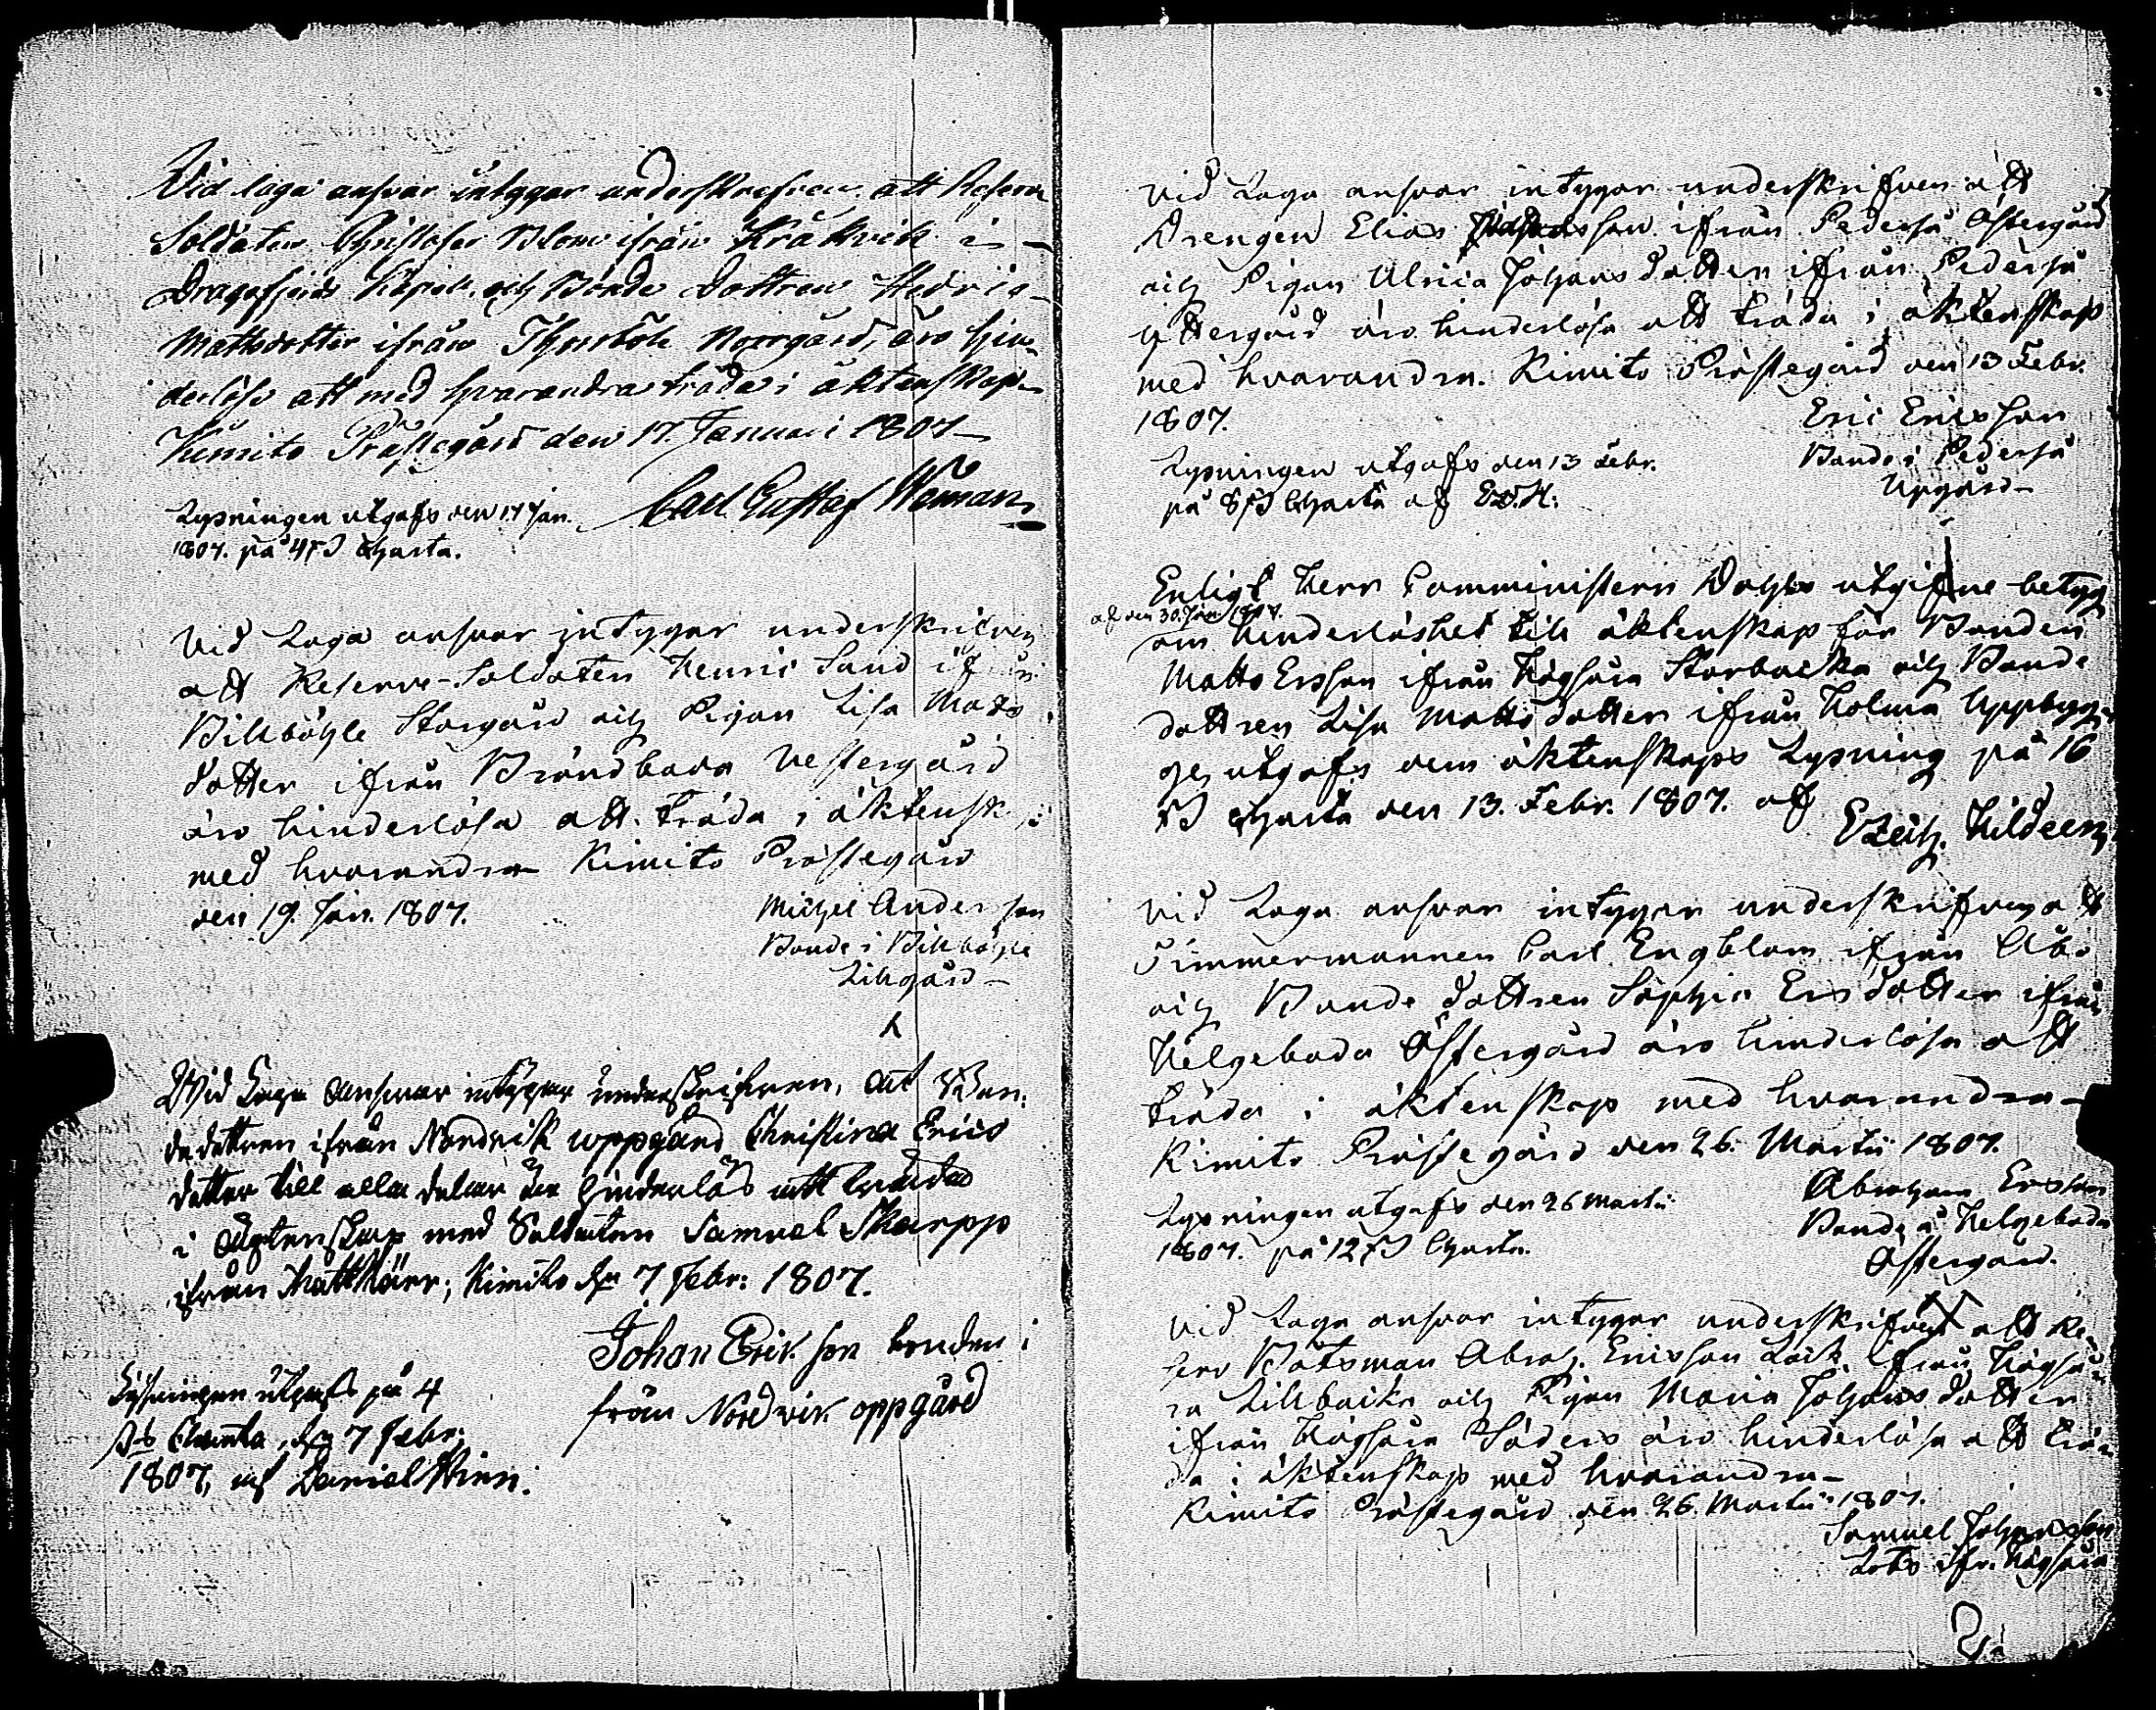 Vid laga ansvar intygar underskrefven att Reserv
Soldaten Christofer Blom ifrån Kråkvik i
Dragsfjerds Capell och Bonde Dottren Hedvig
Mattsdotter ifrån Norrgård, äro hin-
derlöse att med hvarandra träda i äktenskap
Kimito Prästegård den 17. Januari 1807
Carl Gustaf Wöman
Lysningen utgafs den 17 Jan.
1807. på 4 ß Charta.
Vid Laga ansvar intygar underskrifven
att Reserve-Soldaten Henric Sund ifrån
Billböhle Storgård och Pigan Lisa Mats
dotter ifrån Brändboda Vestergård
äro hinderlösa att träda i äktensk
med hvarandra Kimito Prästegård
den 19. Jan. 1807.
Michel Andersson
Bonde i Billböhle
Lillgård
Wid Laga Answar intygar underskrifwen, at Bon-
de dottren ifrån Nordvik uppgård Christina Erics
dotter till alla delar är hinderlös att träda
i Ägtenskap med Soldaten Samuel Skarpp
ifrån Mattkärr; Kimito d. 7 Febr: 1807.
Johan Erik son bonden i
från Nordvik oppgård
Lysningen utgafs på 4
ß Charta, d. 7 Febr:
1807, af Daniel
Vid Laga ansvar intygar underskrifven att
Drengen Elias son ifrån Pederså Östergård
och Pigan Ulrica Johansdotter ifrån Pederså
Yttergård äro hinderlösa att träda i äktenskap
med hvarandra. Kimito Prästegård den 13 Febr.
1807.
Eric Ericsson
Bonde i Pederså
Uppgård
Lysningen utgafs den 13 Febr.
på 8 ß Charta af Ez. H.
Enligt Herr Comministern utgifne betyg
af den 30. Jan. 1807.
om hinderlöshet till äktenskap för Bonden
Matts Ersson ifrån Högsåra Storbacka och Bonde
dottren Lisa Mattsdotter ifrån Holma Uppbyg-
ge utgafs dem äktenskaps Lysning på 16
ß Charta den 13. Febr. 1807. af
Ezech. Hildeen
Vid Laga ansvar intygar underskrifven att
Timmermannen Carl Engblom ifrån Åbo
och Bonde dottren Sophia Ersdotter ifrån
Helgeboda Östergård äro hinderlösa att
träda i äktenskap med hvarandra
Kimito Prästegård den 26. Martii 1807.
Abraham Ersson
Bonde i Helgeboda
Östergård.
Lysningen utgafs den 26 Martii
1807. på 12 ß Charta.
Vid Laga ansvar intygar underskrifven att Re-
serv Båtsman Abrah. Ericsson ifrån Högså-
ra Lillbacka och Pigan Maria Johansdotter
ifrån Högsåra Söders äro hinderlösa att trä-
da i äktenskap med hvarandra
Kimito Prästegård den 26. Martii 1807.
Samuel Johansson
Lots ifr. Högsåra